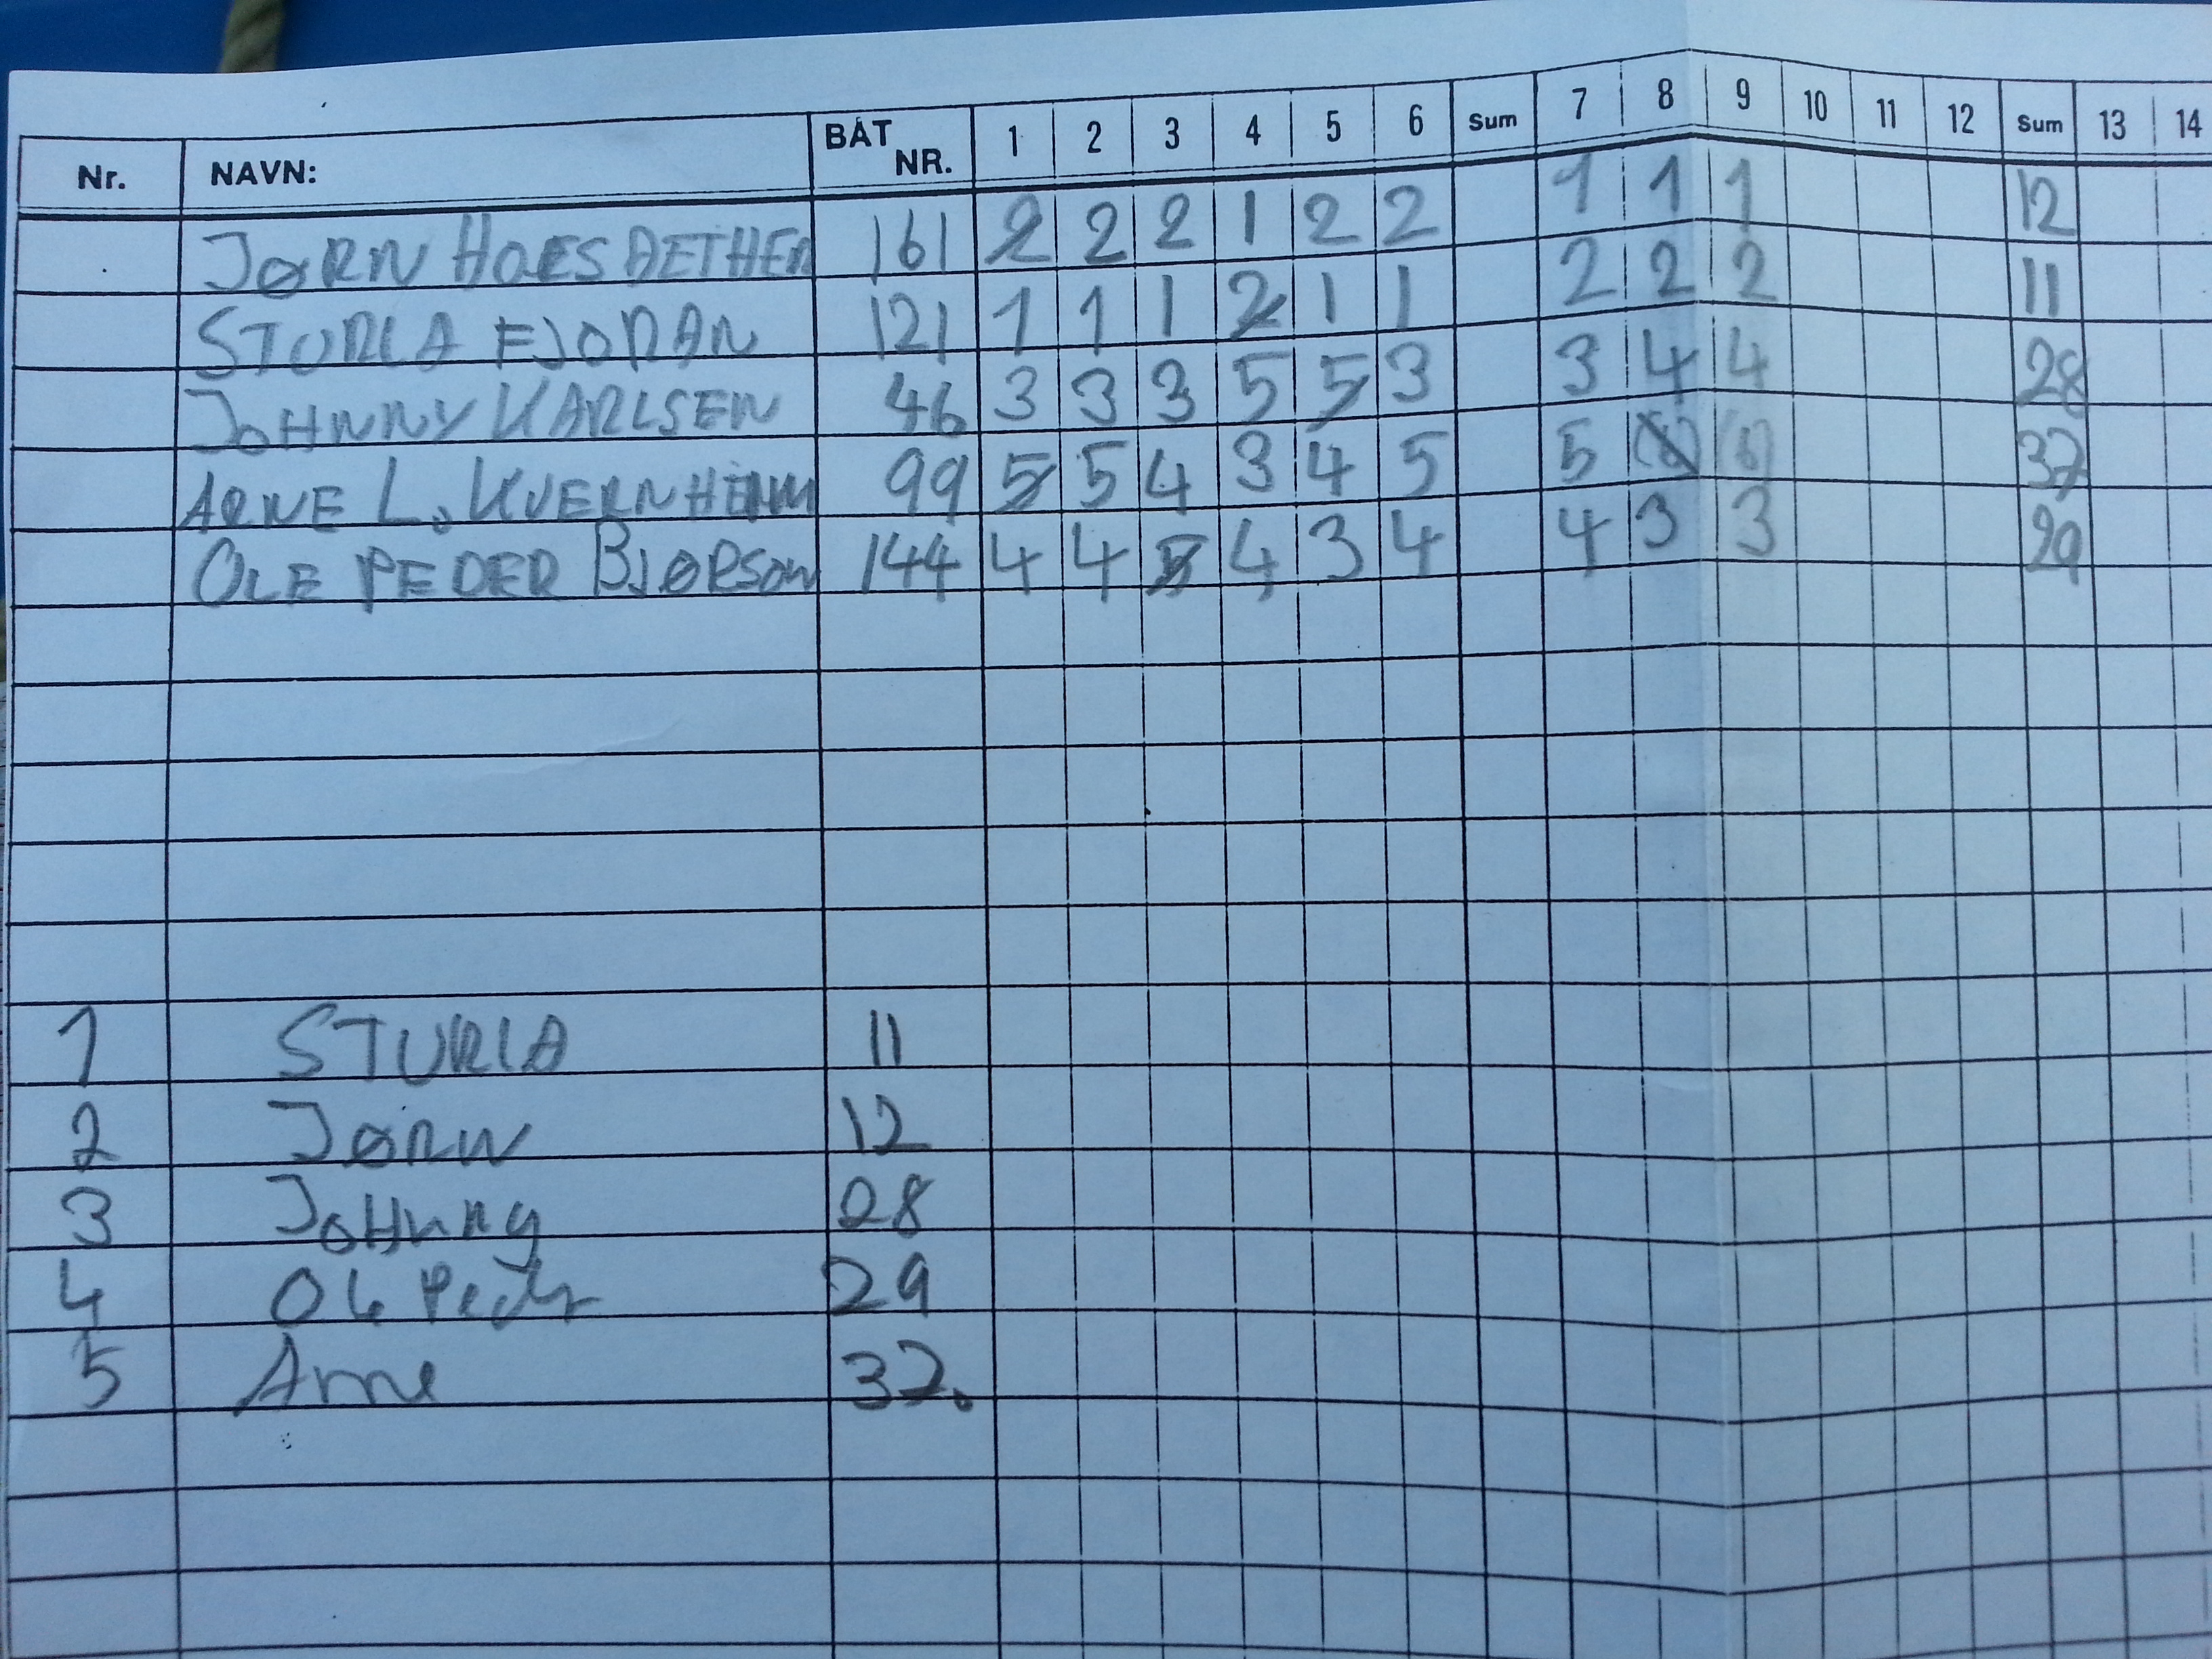 Nr. NAVN: BÅT NR. 1 2 3 4 5 6 Sum 7 8 9 10 11 12 Sum 13 14
JØRN 161 2 2 2 1 2 2 1 1 1 12
STURLA FJORAN 121 1 1 1 2 1 1 2 2 2 11
JOHNNY KARLSEN 46 3 3 3 5 5 3 3 4 4 28
ARNE L. KVERNHEIM 99 5 5 4 3 4 5 5 (6) (6) 37
OLE PEDER BJØRSON 144 4 4 5 4 3 4 4 3 3 29
1 STURLA 11
2 JØRN 12
3 JOHNNY 28
4 Ole Peder 29
5 Arne 37.